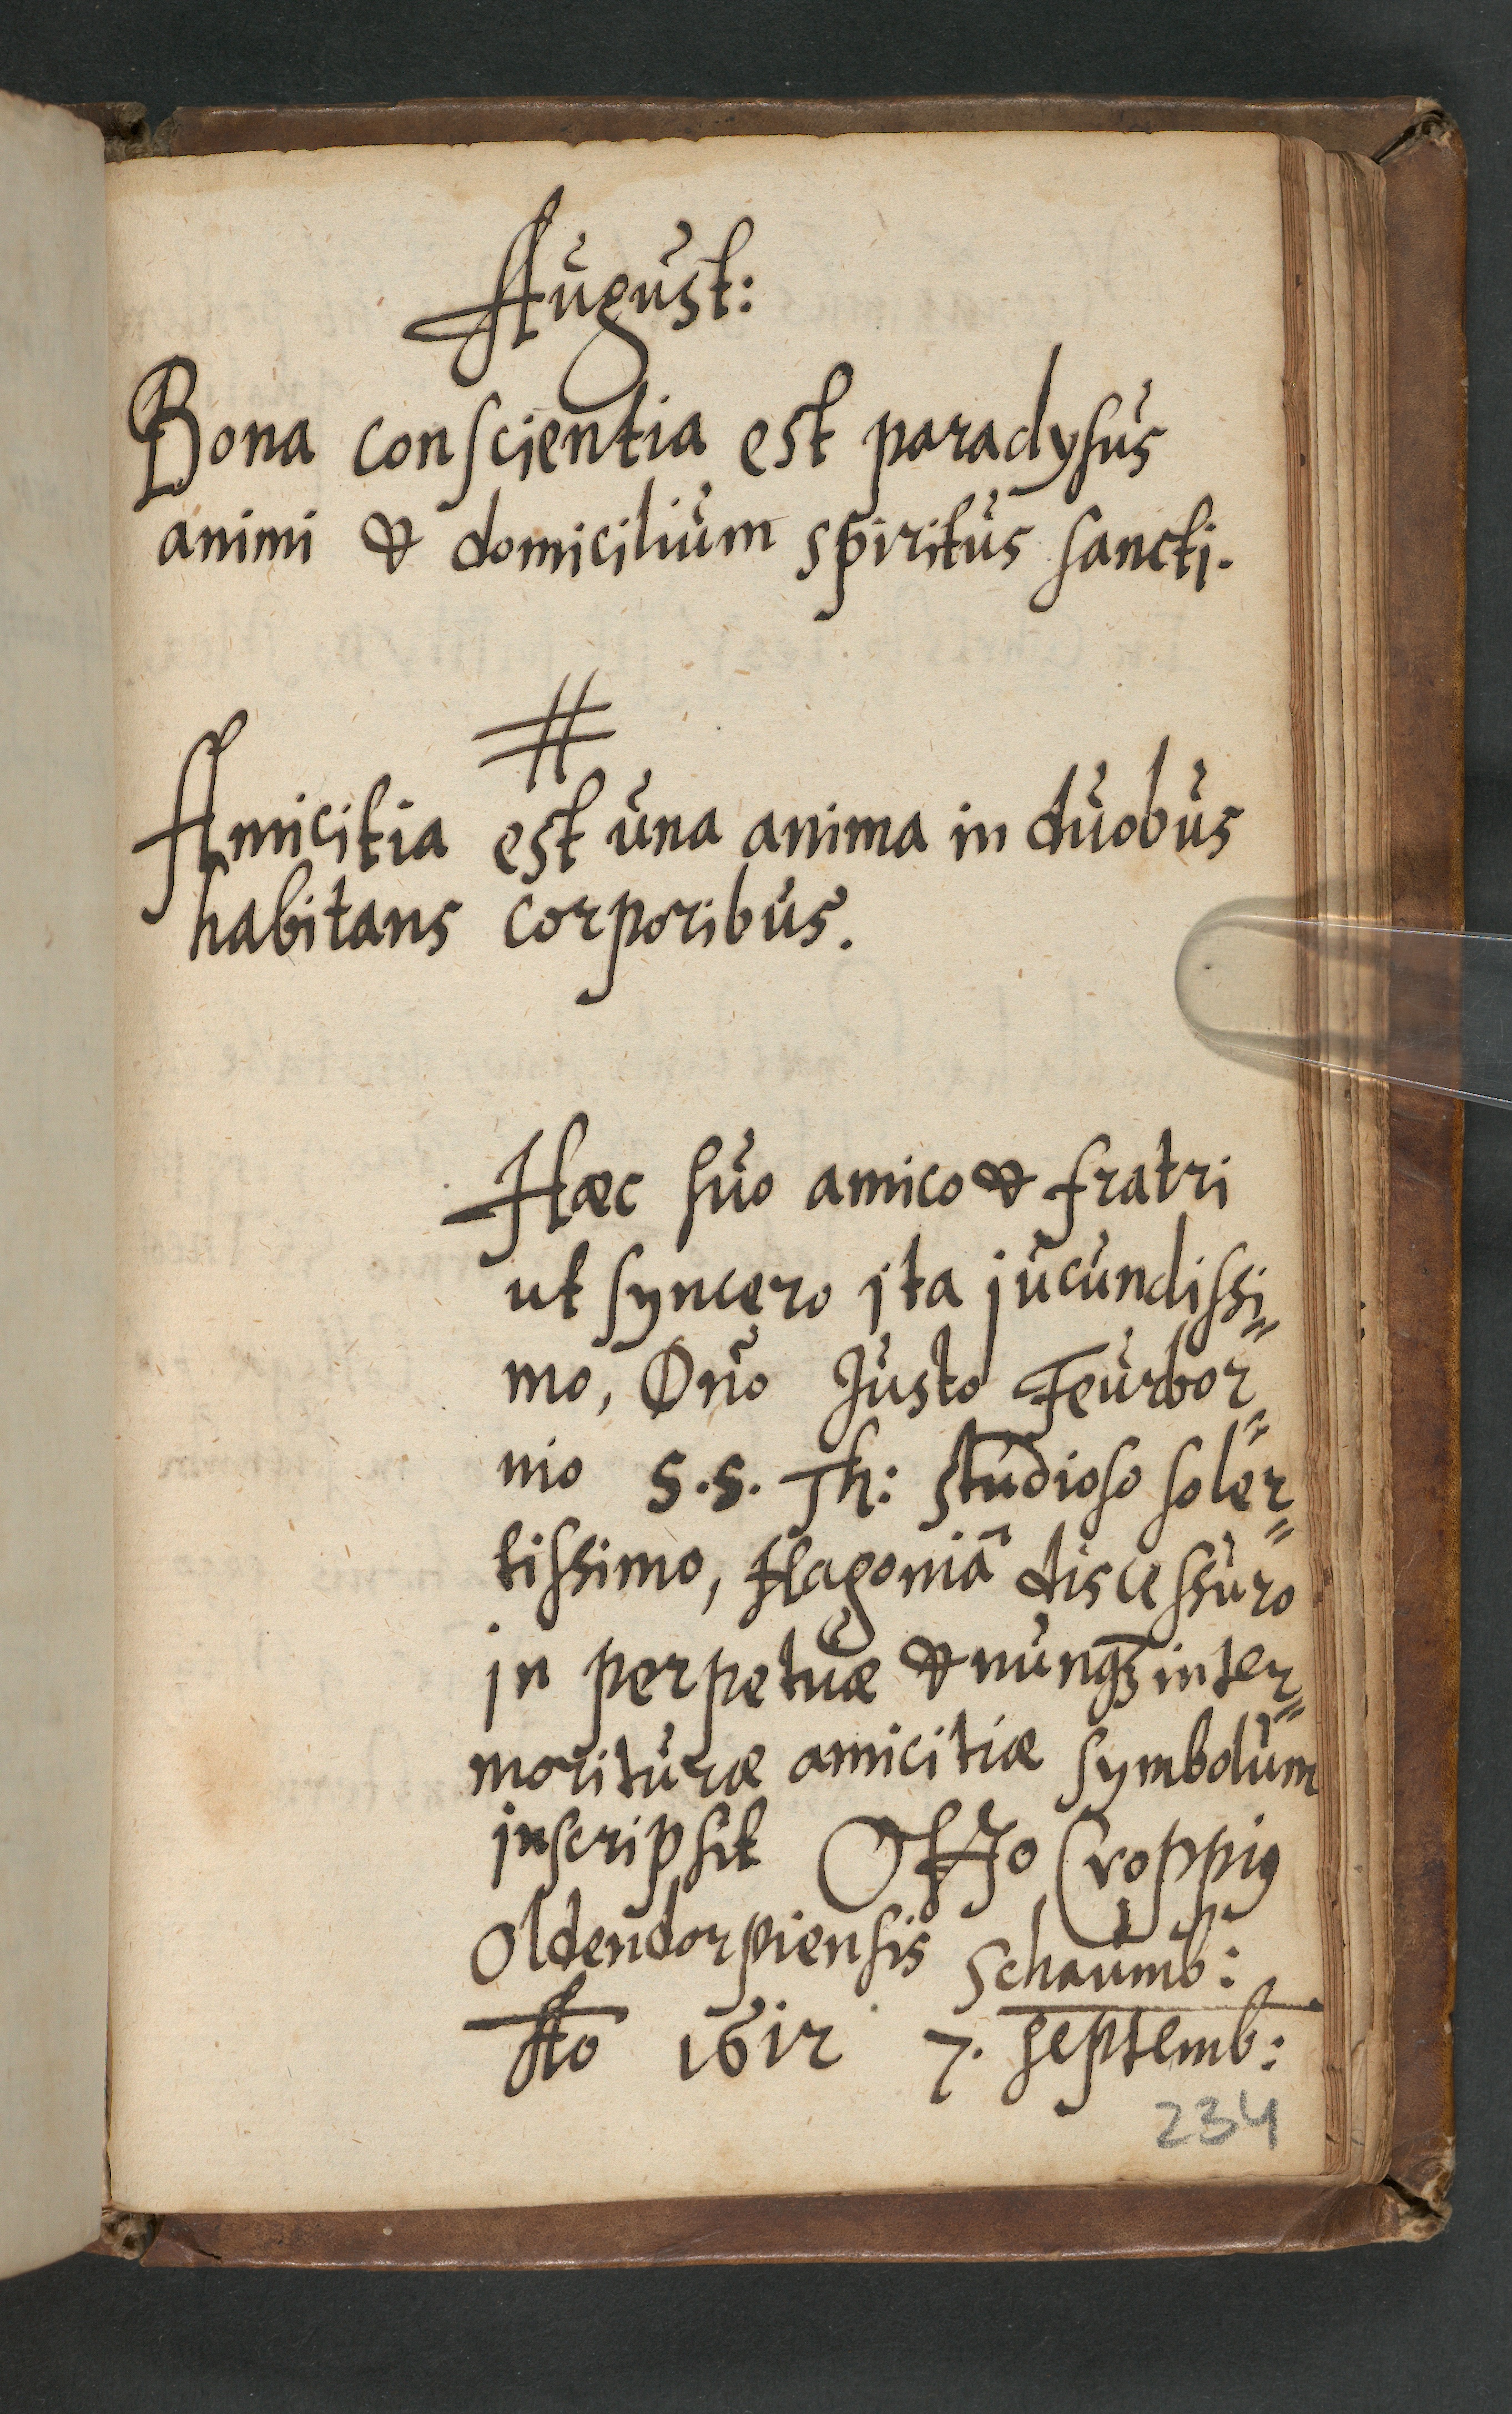 August:
Bona conscientia est paradysus
animi & domicilium spiritus sancti.
#
Amicitia est una anima in duobus
habitans corporibus.
Haec suo amico & fratri
ut syncero ita jucundissi=
mo, Dño Justo Feurbor=
nio S.S. Th: studioso soler=
tissimo, Hagoniã discessuro
in perpetuæ & nunqꝫ inter=
morituræ amicitiæ symbolum
inscripsit Otto Croppiꝰ
Oldendorpiensis Schaumb:
Ao 1612 7. Septemb:
234